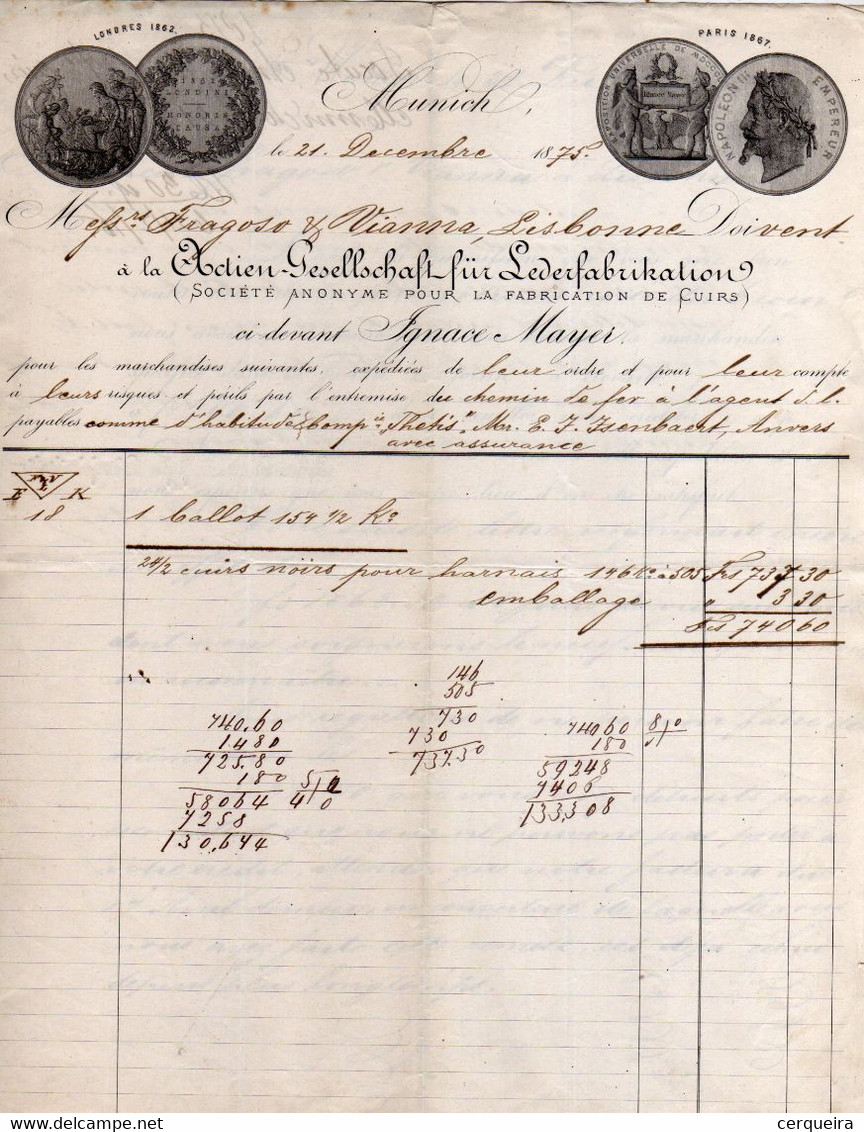 LONDRES 1862.
PARIS 1867.
LONDINI
HONORIS
CAUSA
EXPOSITION UNIVERSELLE DE
Ignace Mayer
NAPOLEON III EMPEREUR
Munich,
le 21. Decembre 1875.
Messrs Fragoso & Vianna, Lisbonne Doivent
à la Actien-Gesellschaft für Lederfabrikation
(SOCIÉTÉ ANONYME POUR LA FABRICATION DE CUIRS)
ci-devant Ignace Mayer,
pour les marchandises suivantes, expédiées de leur ordre et pour leur compte
à leurs risques et périls par l'entremise du chemin de fer à l'agent d. l.
payables comme d'habitude Compie "Thetis" Mr. E. J. Isenbaert, Anvers
avec assurance
E K
18 1 ballot 154 1/2 Ko
24/2 cuirs noirs pour harnais 146 Ko à 505 Frs 737 30
emballage " 3 30
Frs 740 60
146
505
730
730
737.30
740.60
1480
725.80
180
58064
7258
130.644
5/2
4 0
74060 8/0
180
59248
7406
133.308
cerqueira